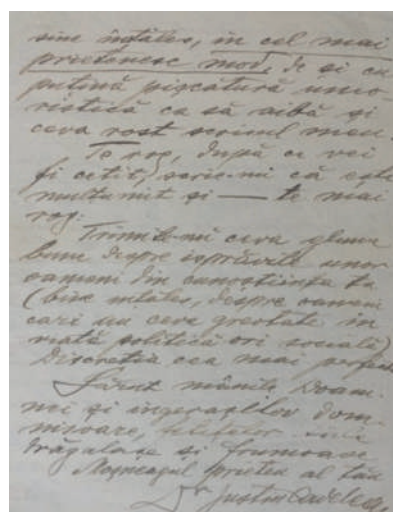 bine înțăles, în cel mai
prietenesc mod, de și cu
puțină pișcătură umo-
ristică ca să aibă și
ceva rost scrisul meu.
Te rog, după ce vei
fi cetit, scrie-mi că ești
mulțumit și — te mai
rog:
Trimite-mi ceva glume
bune despre isprăvile unor
oameni din cunoștiința ta
(bine înțăles, despre oameni
cari au ceva greutate în
viață politică ori socială)
Discreția cea mai perfectă
Sărut mânile Doam-
nei și îngerașilor dom-
nișoare,
drăgălașe și frumoase
Moșneagul prieten al tău
Dr Justin